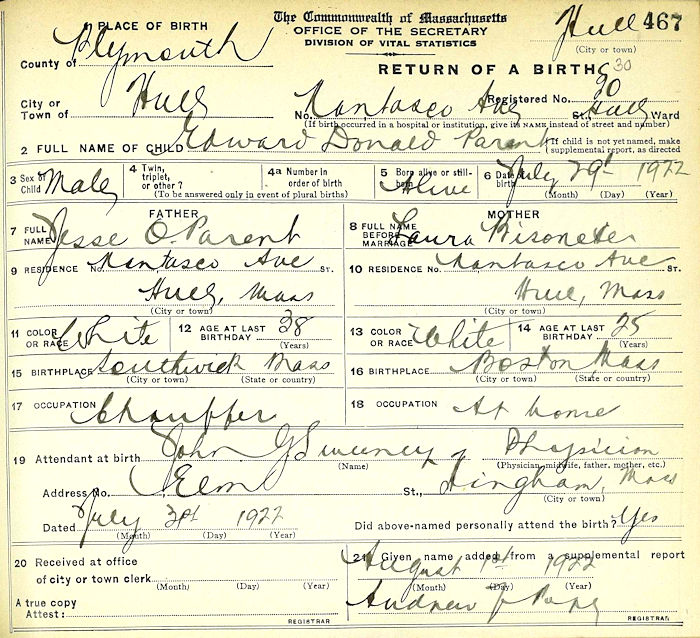 1 PLACE OF BIRTH
The Commonwealth of Massachusetts
OFFICE OF THE SECRETARY
DIVISION OF VITAL STATISTICS
Hull 467
(City or town)
County of Plymouth
RETURN OF A BIRTH
Registered No. 30
City or Town of Hull No. Nantasco Ave St., Hull Ward
(If birth occurred in a hospital or institution, give its NAME instead of street and number)
2 FULL NAME OF CHILD Edward Donald Parent
(If child is not yet named, make supplemental report, as directed
3 Sex of Child Male 4 Twin, triplet, or other? 4a Number in order of birth 5 Born alive or still-born Alive 6 Date of birth July 29 1922
(To be answered only in event of plural births) (Month) (Day) (Year)
FATHER MOTHER
7 FULL NAME Jesse O. Parent 8 FULL NAME BEFORE MARRIAGE Laura
9 RESIDENCE No. Nantasco Ave ST. 10 RESIDENCE No. Nantasco Ave ST.
Hull, Mass Hull, Mass
(City or town) (City or town)
11 COLOR OR RACE White 12 AGE AT LAST BIRTHDAY 38 (Years) 13 COLOR OR RACE White 14 AGE AT LAST BIRTHDAY 25 (Years)
15 BIRTHPLACE Southwick Mass 16 BIRTHPLACE Boston, Mass
(City or town) (State or country) (City or town) (State or country)
17 OCCUPATION Chauffer 18 OCCUPATION At home
19 Attendant at birth John G Sweeney, Physician
(Name) (Physician, midwife, father, mother, etc.)
Address No. Elm St., Hingham, Mass
(City or town)
Dated July 31st 1922 Did above-named personally attend the birth? Yes
(Month) (Day) (Year)
20 Received at office of city or town clerk
(Month) (Day) (Year)
21 Given name added from a supplemental report
August 1st 1922
(Month) (Day) (Year)
A true copy
Attest: REGISTRAR
Andrew F REGISTRAR